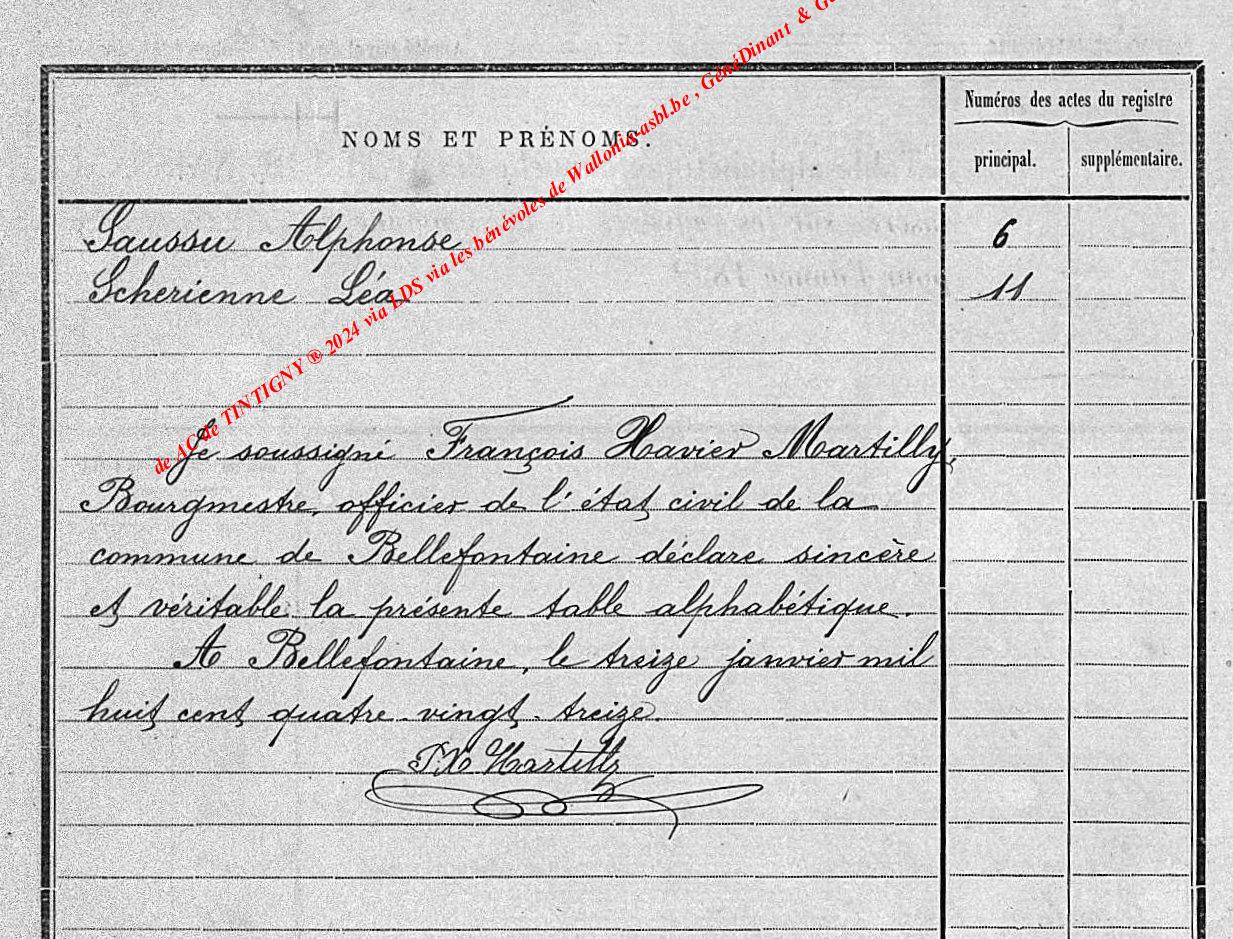 NOMS ET PRÉNOMS.
Numéros des actes du registre
principal.
supplémentaire.
Saussu Alphonse 6
Scherienne Léa 11
Je soussigné François Xavier Martilly,
Bourgmestre, officier de l'état civil de la
commune de Bellefontaine déclare sincère
et véritable la présente table alphabétique.
A Bellefontaine, le treize janvier mil
huit cent quatre-vingt-treize.
F. X. Martilly
de AC de TINTIGNY ® 2024 via LDS via les bénévoles de Wallonia-asbl.be , GénéDinant &